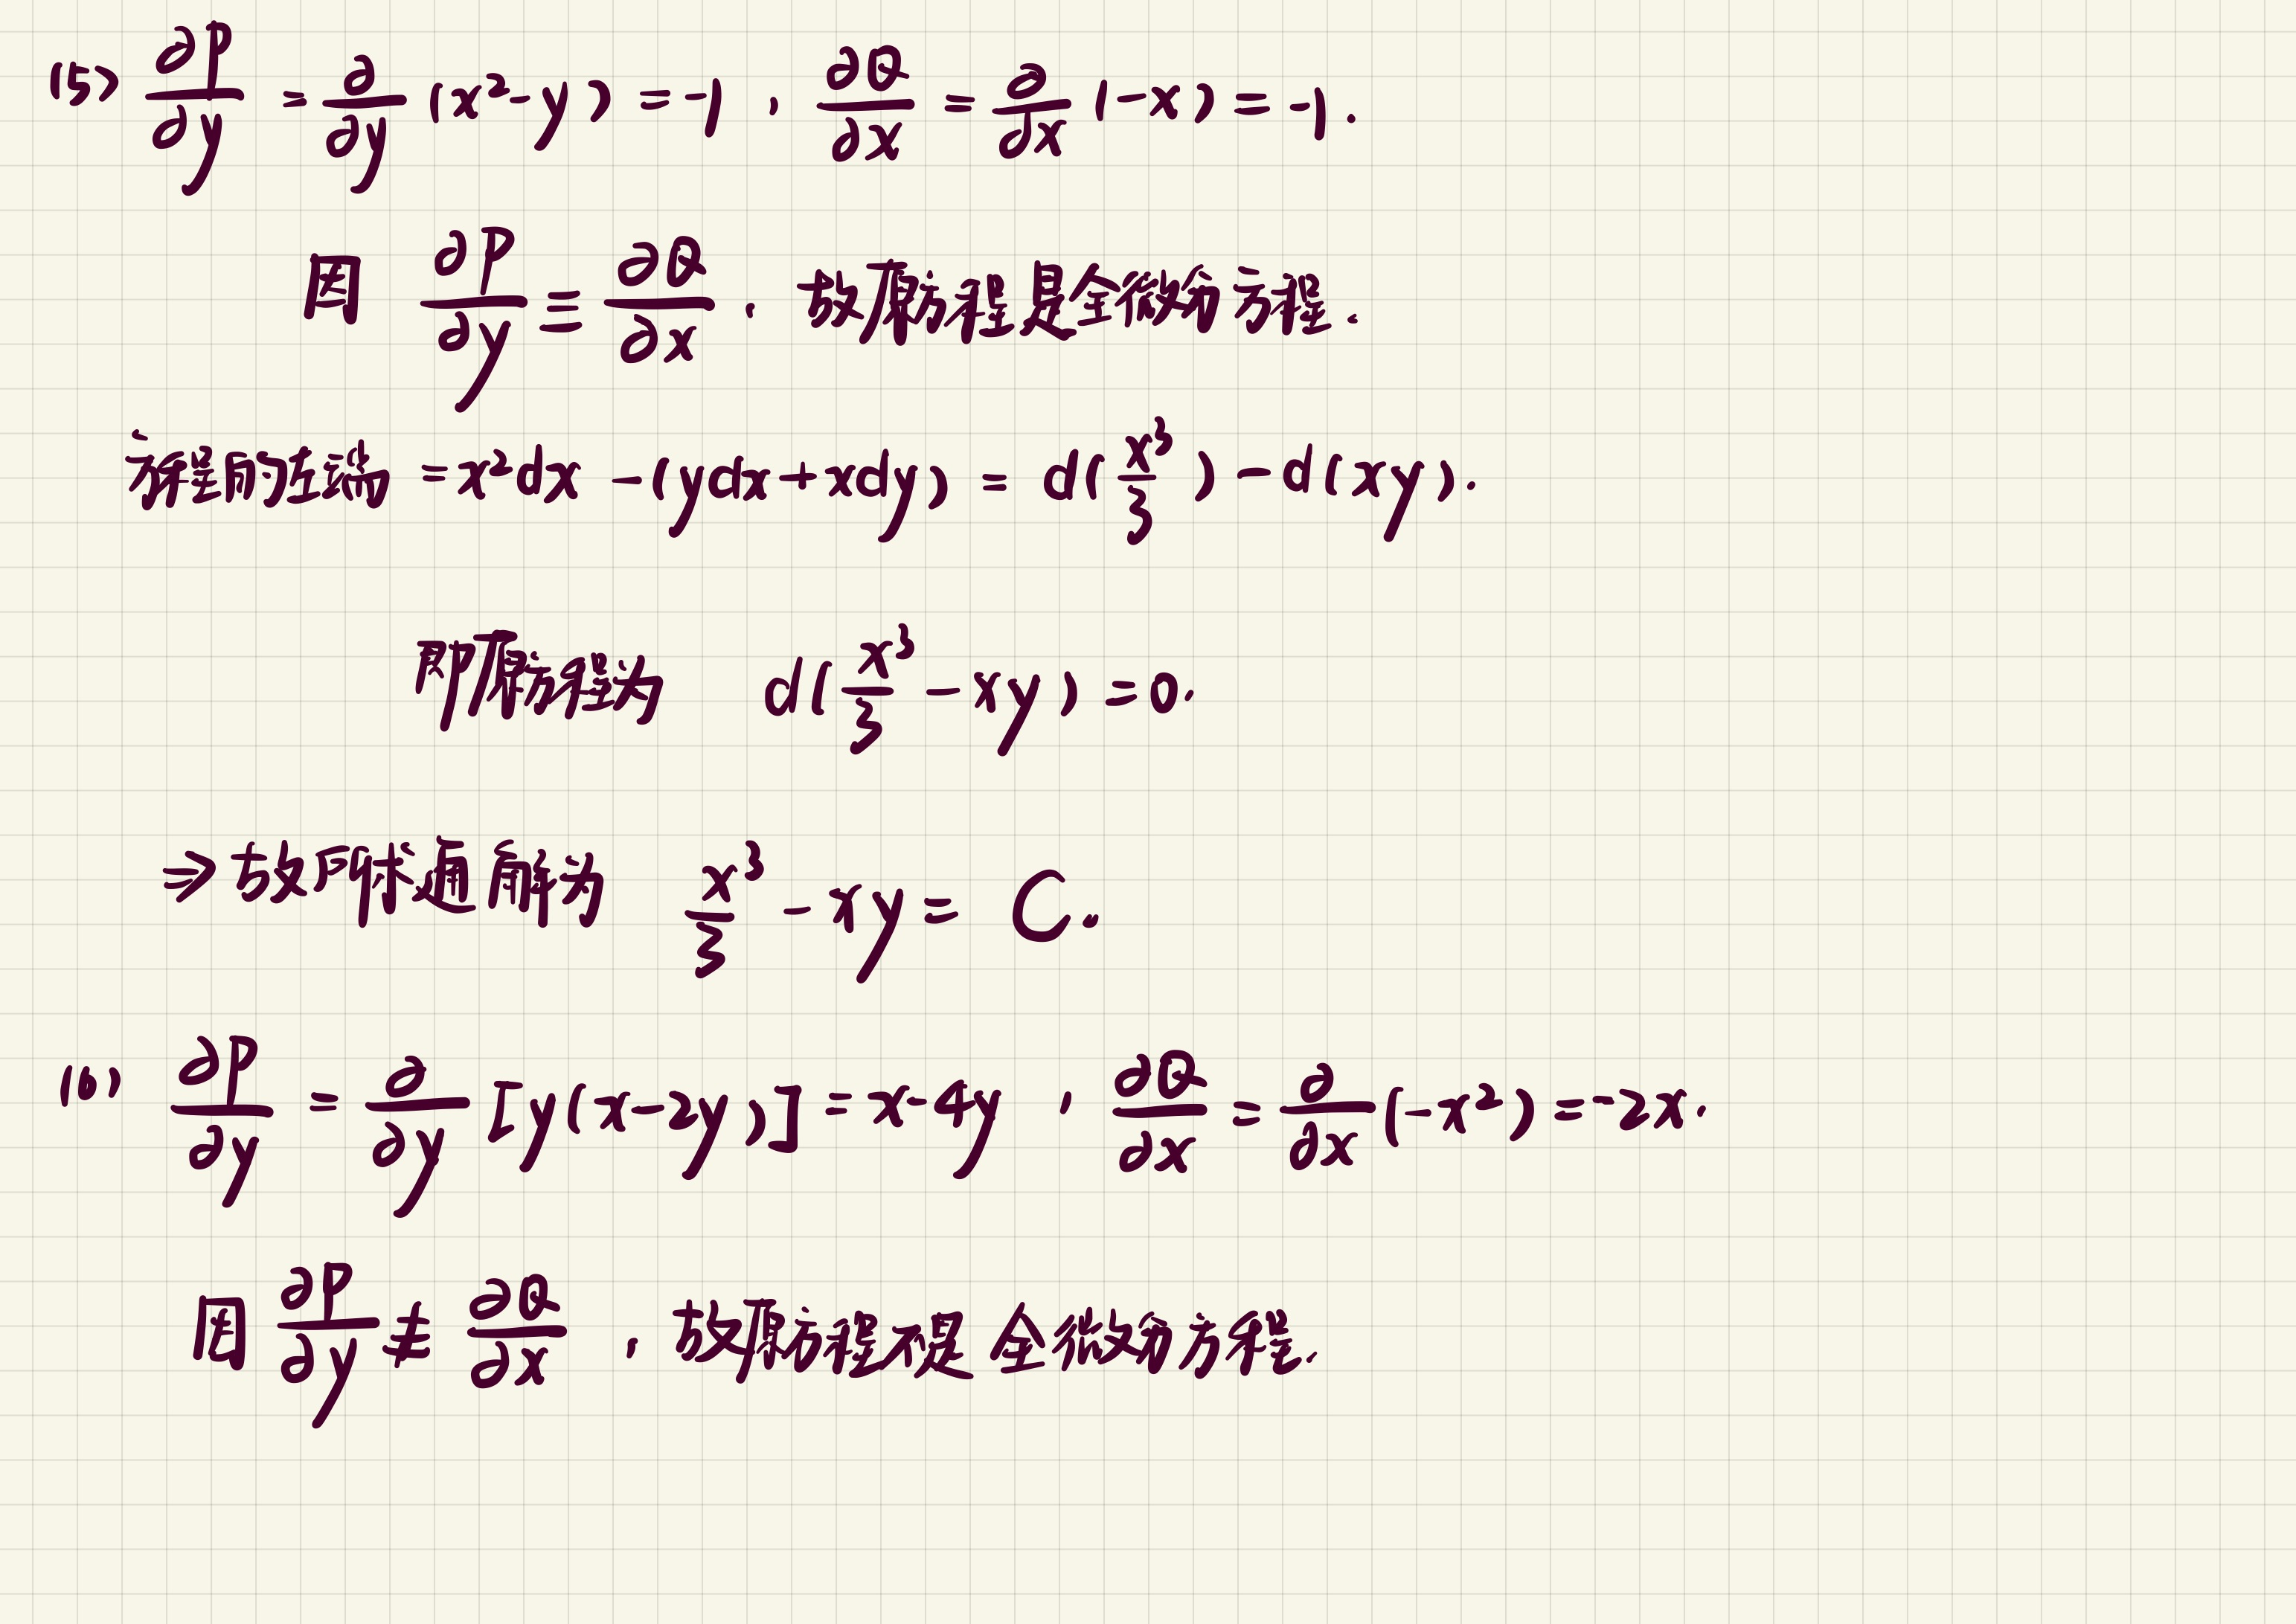 (5) ∂P/∂y = ∂/∂y (x²-y) = -1, ∂Q/∂x = ∂/∂x (-x) = -1.
因 ∂P/∂y ≡ ∂Q/∂x, 故原方程是全微分方程.
方程的左端 = x²dx - (ydx+xdy) = d(x³/3) - d(xy).
即原方程为 d(x³/3 - xy) = 0.
⇒ 故所求通解为 x³/3 - xy = C.
(6) ∂P/∂y = ∂/∂y [y(x-2y)] = x-4y, ∂Q/∂x = ∂/∂x (-x²) = -2x.
因 ∂P/∂y ≢ ∂Q/∂x, 故原方程不是全微分方程.